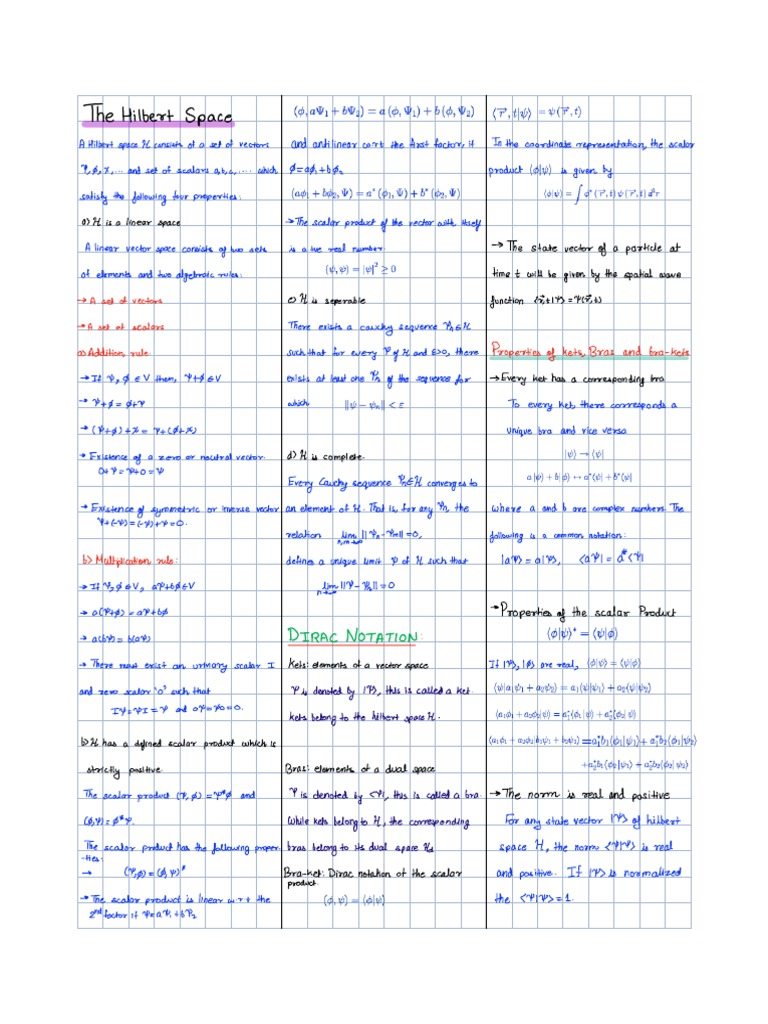 The Hilbert Space
A Hilbert space H consists of a set of vectors
Ψ, ϕ, χ, ... and set of scalars a, b, c, .... which
satisfy the following four properties:
a) H is a linear space
A linear vector space consists of two sets
of elements and two algebraic rules:
→ A set of vectors
→ A set of scalars
a) Addition rule
→ If Ψ, ϕ ∈ V then, Ψ+ϕ ∈ V
→ Ψ+ϕ = ϕ+Ψ
→ (Ψ+ϕ)+χ = Ψ+(ϕ+χ)
→ Existence of a zero or neutral vector.
0+Ψ = Ψ+0 = Ψ
→ Existence of symmetric or inverse vector
Ψ+(-Ψ) = (-Ψ)+Ψ = 0.
b) Multiplication rule:
→ If Ψ, ϕ ∈ V, aΨ+bϕ ∈ V
→ a(Ψ+ϕ) = aΨ+bϕ
→ a(bΨ) = b(aΨ)
→ There must exist an urinary scalar I
and zero scalar 'o' such that
IΨ = ΨI = Ψ and oΨ = Ψo = 0.
b) H has a defined scalar product which is
strictly positive.
The scalar product (Ψ, ϕ) = Ψ*ϕ and
(ϕ, Ψ) = ϕ*Ψ.
The scalar product has the following proper
-ties:
→ (Ψ, ϕ) = (ϕ, Ψ)*
→ The scalar product is linear w.r.t the
2nd factor if Ψ = aΨ₁ + bΨ₂
(ϕ, aΨ₁ + bΨ₂) = a(ϕ, Ψ₁) + b(ϕ, Ψ₂)
and antilinear w.r.t the first factor, if
ϕ = aϕ₁ + bϕ₂
(aϕ₁ + bϕ₂, Ψ) = a*(ϕ₁, Ψ) + b*(ϕ₂, Ψ)
→ The scalar product of the vector with itself
is a +ve real number.
(ψ, ψ) = |ψ|² ≥ 0
c) H is seperable
There exists a cauchy sequence Ψn ∈ H
such that for every Ψ of H and ε>0, there
exists at least one Ψn of the sequence for
which ||ψ − ψn|| < ε
d) H is complete.
Every Cauchy sequence Ψn ∈ H converges to
an element of H. That is, for any Ψn, the
relation lim n,m→∞ ||Ψn - Ψm|| = 0,
defines a unique limit Ψ of H such that
lim n→∞ ||Ψ - Ψn|| = 0
DIRAC NOTATION:
Kets: elements of a vector space
Ψ is denoted by |Ψ>, this is called a ket
kets belong to the hilbert space H.
Bras: elements of a dual space
Ψ is denoted by <Ψ|, this is called a bra.
While kets belong to H, the corresponding
bras belong to its dual space Hd
Bra-ket: Dirac notation of the scalar
product.
(ϕ, ψ) = ⟨ϕ|ψ⟩
⟨r⃗, t|ψ⟩ = ψ(r⃗, t)
In the coordinate representation, the scalar
product ⟨ϕ|ψ⟩ is given by
⟨ϕ|ψ⟩ = ∫ ϕ*(r⃗, t) ψ(r⃗, t) d³r
→ The state vector of a particle at
time t will be given by the spatial wave
function <r⃗,t|Ψ> = Ψ(r⃗,t)
Properties of kets, Bras and bra-kets
→ Every ket has a corresponding bra
To every ket, there corresponds a
unique bra and vice versa
|ψ⟩ → ⟨ψ|
a|ψ⟩ + b|ϕ⟩ ↔ a*⟨ψ| + b*⟨ϕ|
where a and b are complex numbers. The
following is a common notation:
|aΨ> = a|Ψ>, <aΨ| = a*<Ψ|
→ Properties of the scalar Product
⟨ϕ|ψ⟩* = ⟨ψ|ϕ⟩
If |Ψ>, |ϕ> are real, ⟨ϕ|ψ⟩ = ⟨ψ|ϕ⟩
⟨ψ|a₁ψ₁ + a₂ψ₂⟩ = a₁⟨ψ|ψ₁⟩ + a₂⟨ψ|ψ₂⟩
⟨a₁ϕ₁ + a₂ϕ₂|ψ⟩ = a₁*⟨ϕ₁|ψ⟩ + a₂*⟨ϕ₂|ψ⟩
⟨a₁ϕ₁ + a₂ϕ₂|b₁ψ₁ + b₂ψ₂⟩ = a₁*b₁⟨ϕ₁|ψ₁⟩ + a₁*b₂⟨ϕ₁|ψ₂⟩
+a₂*b₁⟨ϕ₂|ψ₁⟩ + a₂*b₂⟨ϕ₂|ψ₂⟩
→ The norm is real and positive
For any state vector |Ψ> of hilbert
space H, the norm <Ψ|Ψ> is real
and positive. If |Ψ> is normalized
the <Ψ|Ψ> = 1.